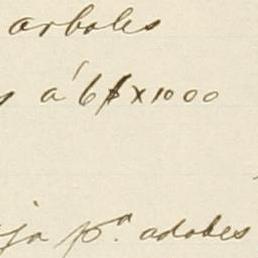 arboles
á 6$ x 1000
pª. adobes